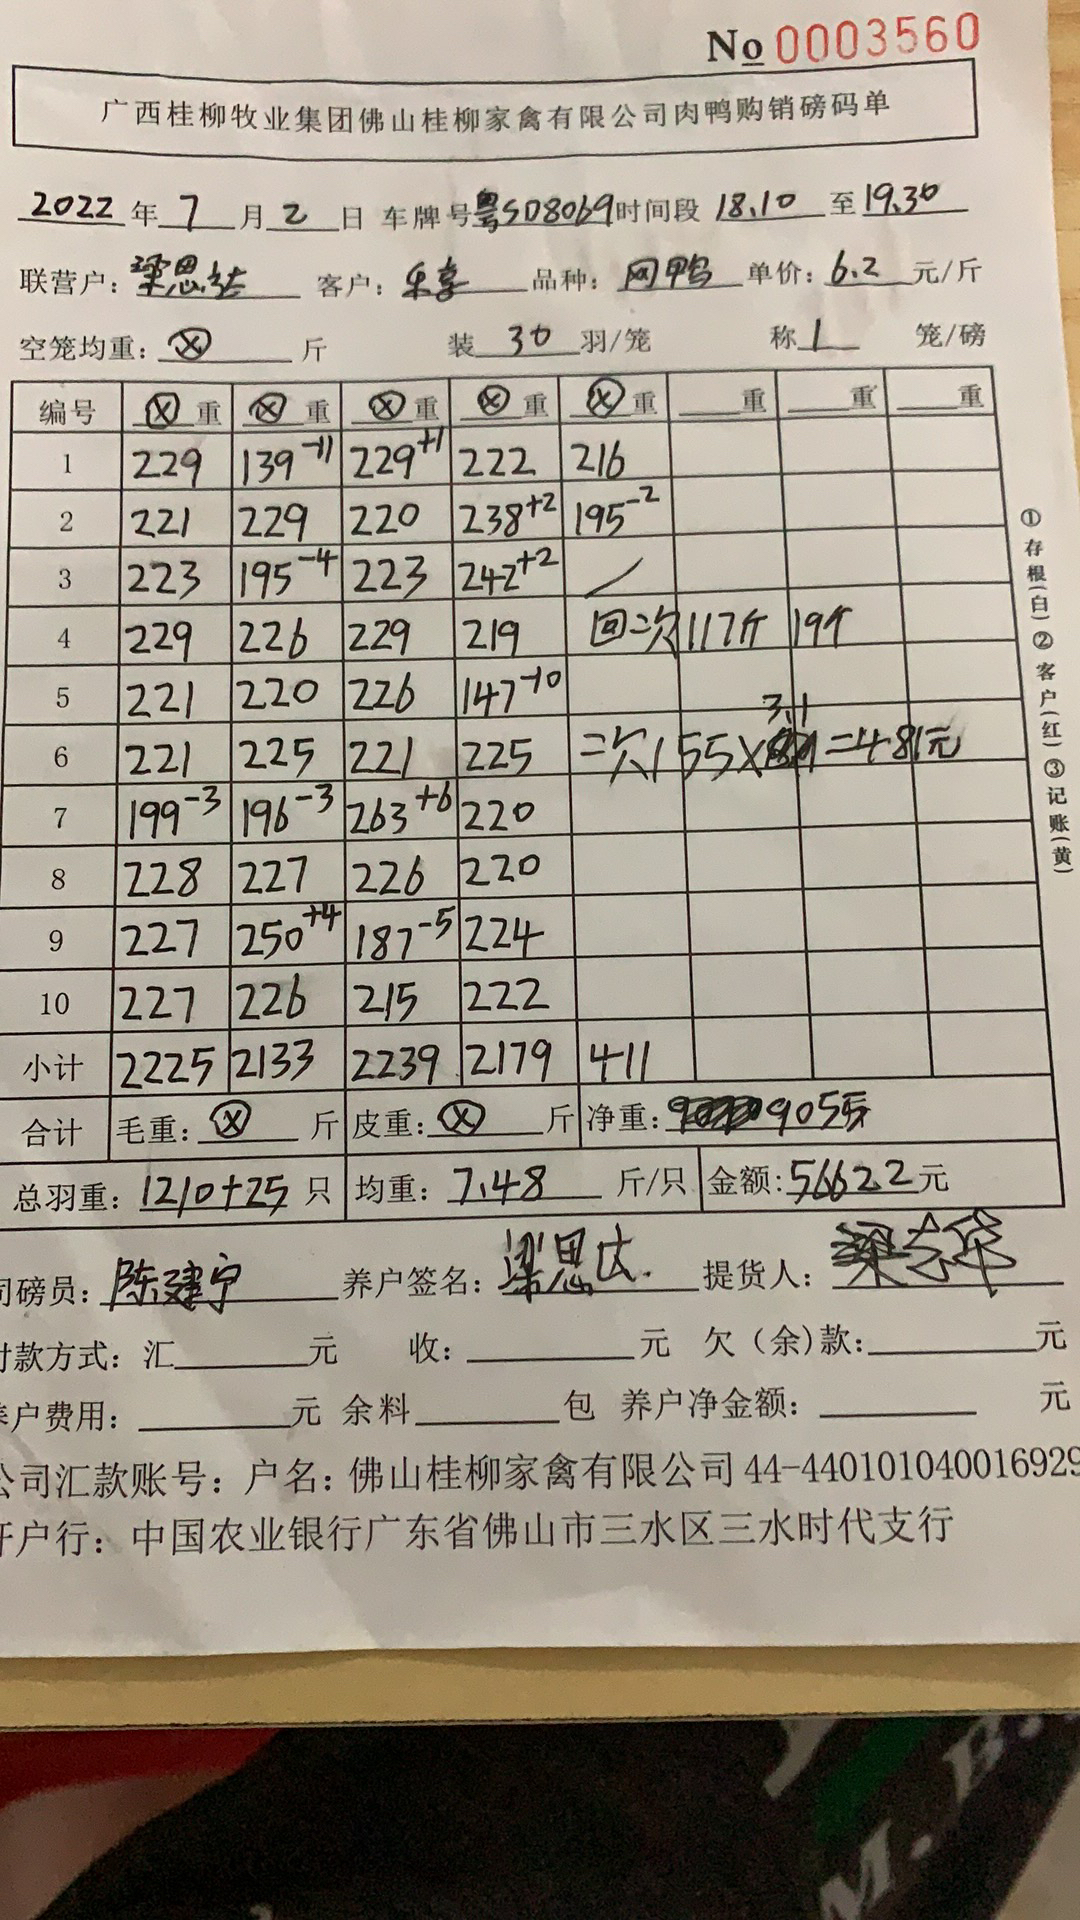 No 0003560
广西桂柳牧业集团佛山桂柳家禽有限公司肉鸭购销磅码单
2022 年 7 月 2 日 车牌号 粤SD8069 时间段 18.10 至 19.30
联营户: 梁思达 客户: 乐享 品种: 网鸭 单价: 6.2 元/斤
空笼均重: ⓧ 斤 装 30 羽/笼 称 1 笼/磅
编号 ⓧ 重 ⓧ 重 ⓧ 重 ⓧ 重 ⓧ 重 重 重 重
1 229 139-11 229+1 222 216
2 221 229 220 238+2 195-2
3 223 195-4 223 242+2 /
4 229 226 229 219 回二次 117斤 19个
5 221 220 226 147-10
6 221 225 221 225 二次155X3.1=481元
7 199-3 196-3 263+6 220
8 228 227 226 220
9 227 250+4 187-5 224
10 227 226 215 222
小计 2225 2133 2239 2179 411
合计 毛重: ⓧ 斤 皮重: ⓧ 斤 净重: 9055
总羽重: 1210+25 只 均重: 7.48 斤/只 金额: 56622 元
司磅员: 陈建宁 养户签名: 梁思达 提货人:
付款方式: 汇 元 收: 元 欠(余)款: 元
养户费用: 元 余料 包 养户净金额: 元
公司汇款账号: 户名: 佛山桂柳家禽有限公司 44-440101040016929
开户行: 中国农业银行广东省佛山市三水区三水时代支行
①存根(白)②客户(红)③记账(黄)
M.B.
M.